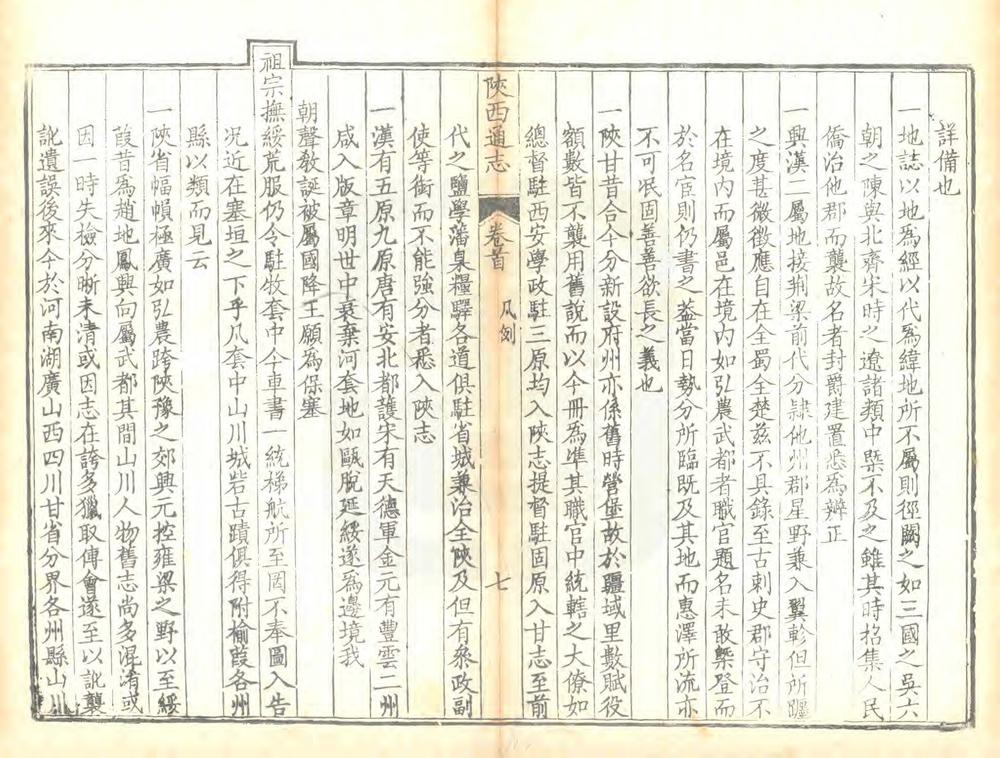 詳備也
一地誌以地爲經以代爲緯地所不屬則徑闕之如三國之吳六
朝之陳與北齊宋時之遼諸類中槩不及之雖其時招集人民
僑治他郡而襲故名者封爵建置悉爲辨正
一興漢二屬地接荆梁前代分隷他州郡星野兼入翼軫但所躔
之度甚微徵應自在全蜀全楚兹不具錄至古刺史郡守治不
在境内而屬邑在境内如弘農武都者職官題名未敢槩登而
於名宦則仍書之葢當日勢分所臨既及其地而惠澤所流亦
不可泯固善善欲長之義也
一陝甘昔合今分新設府州亦係舊時營堡故於疆域里數賦役
額數皆不襲用舊說而以今冊爲凖其職官中統轄之大僚如
總督駐西安學政駐三原均入陝志提督駐固原入甘志至前
陝西通志
卷首
凡例
七
代之鹽學藩臬糧驛各道俱駐省城兼治全陝及但有叅政副
使等銜而不能強分者悉入陝志
一漢有五原九原唐有安北都護宋有天德軍金元有豐雲二州
咸入版章明世中衰棄河套地如甌脫延綏遂爲邊境我
朝聲敎誕被屬國降王願爲保塞
祖宗撫綏荒服仍令駐牧套中今車書一統梯航所至罔不奉圖入告
况近在塞垣之下乎凡套中山川城砦古蹟俱得附榆葭各州
縣以類而見云
一陝省幅幀極廣如弘農跨陝豫之郊興元控雍梁之野以至綏
葭昔爲趙地鳳興向屬武都其間山川人物舊志尚多混淆或
因一時失檢分晰未清或因志在誇多獵取傳會遂至以訛襲
訛遺誤後來今於河南湖廣山西四川甘省分界各州縣山川